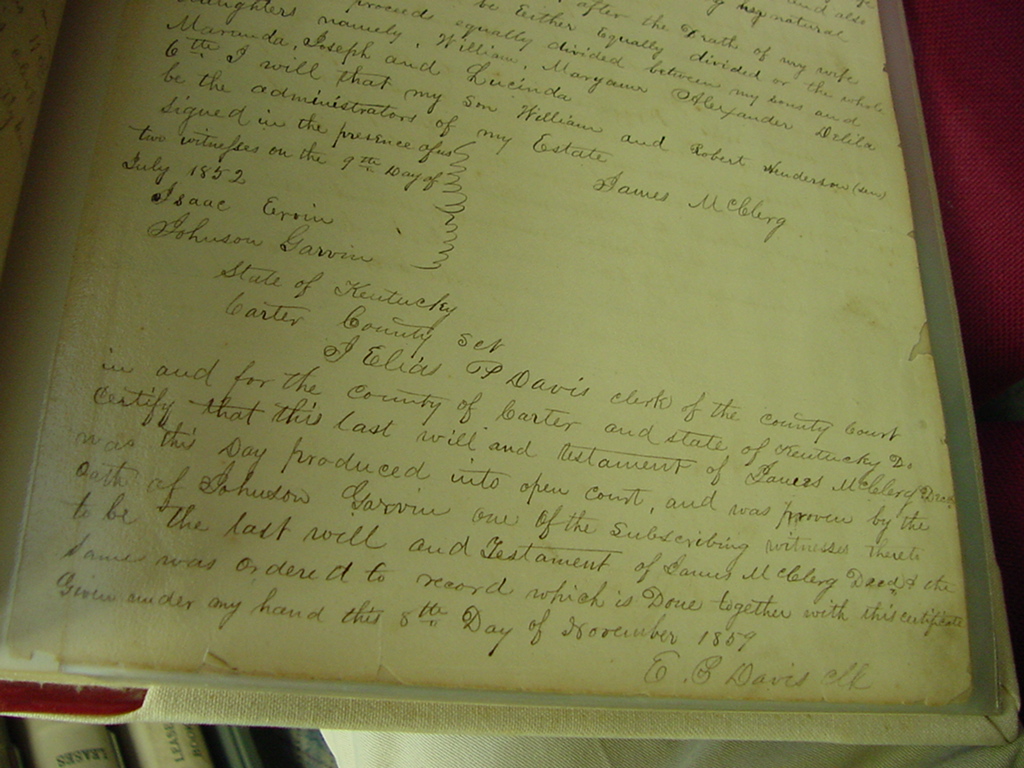 and also
my natural
after the Death of my wife
be Either Equally divided or the whole
proceeds equally divided between my sons and
daughters namely, William, Maryann Alexander Delila
Maranda, Joseph and Lucinda
6th I will that my son William and Robert Henderson
be the administrators of my Estate
Signed in the presence of us
two witnesses on the 9th Day of
July 1852
James McClerg
Isaac Ervin
Johnson Garvin
State of Kentucky
Carter County Sct
I Elias P Davis clerk of the county Court
in and for the county of Carter and state of Kentucky Do
certify that this last will and testament of James McClerg Decd
was this Day produced into open court, and was proven by the
oath of Johnson Garvin one of the Subscribing witnesses thereto
to be the last will and Testament of James McClerg Decd & the
same was ordered to record which is Done together with this certificate
Given under my hand this 8th Day of November 1859
E. P Davis clk
LEASES
LEASE
BOOK